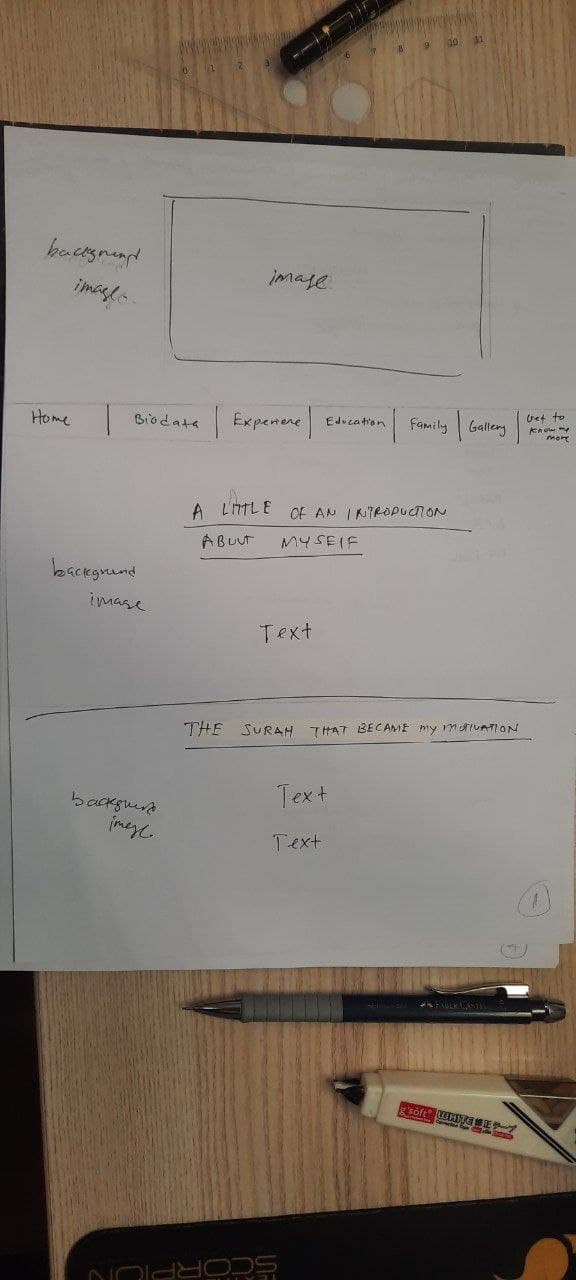 0 1 2 3 6 7 8 9 10 11
background
image
image
Home
Biodata
Experiene
Education
Family
Gallery
Get to
know me
more
A LITTLE OF AN INTRODUCTION
ABOUT MYSELF
background
image
Text
THE SURAH THAT BECAME MY MOTIVATION
background
image
Text
Text
1
FABER-CASTELL
g'soft
WHITE 修正テープ
Correction Tape
SCORPION